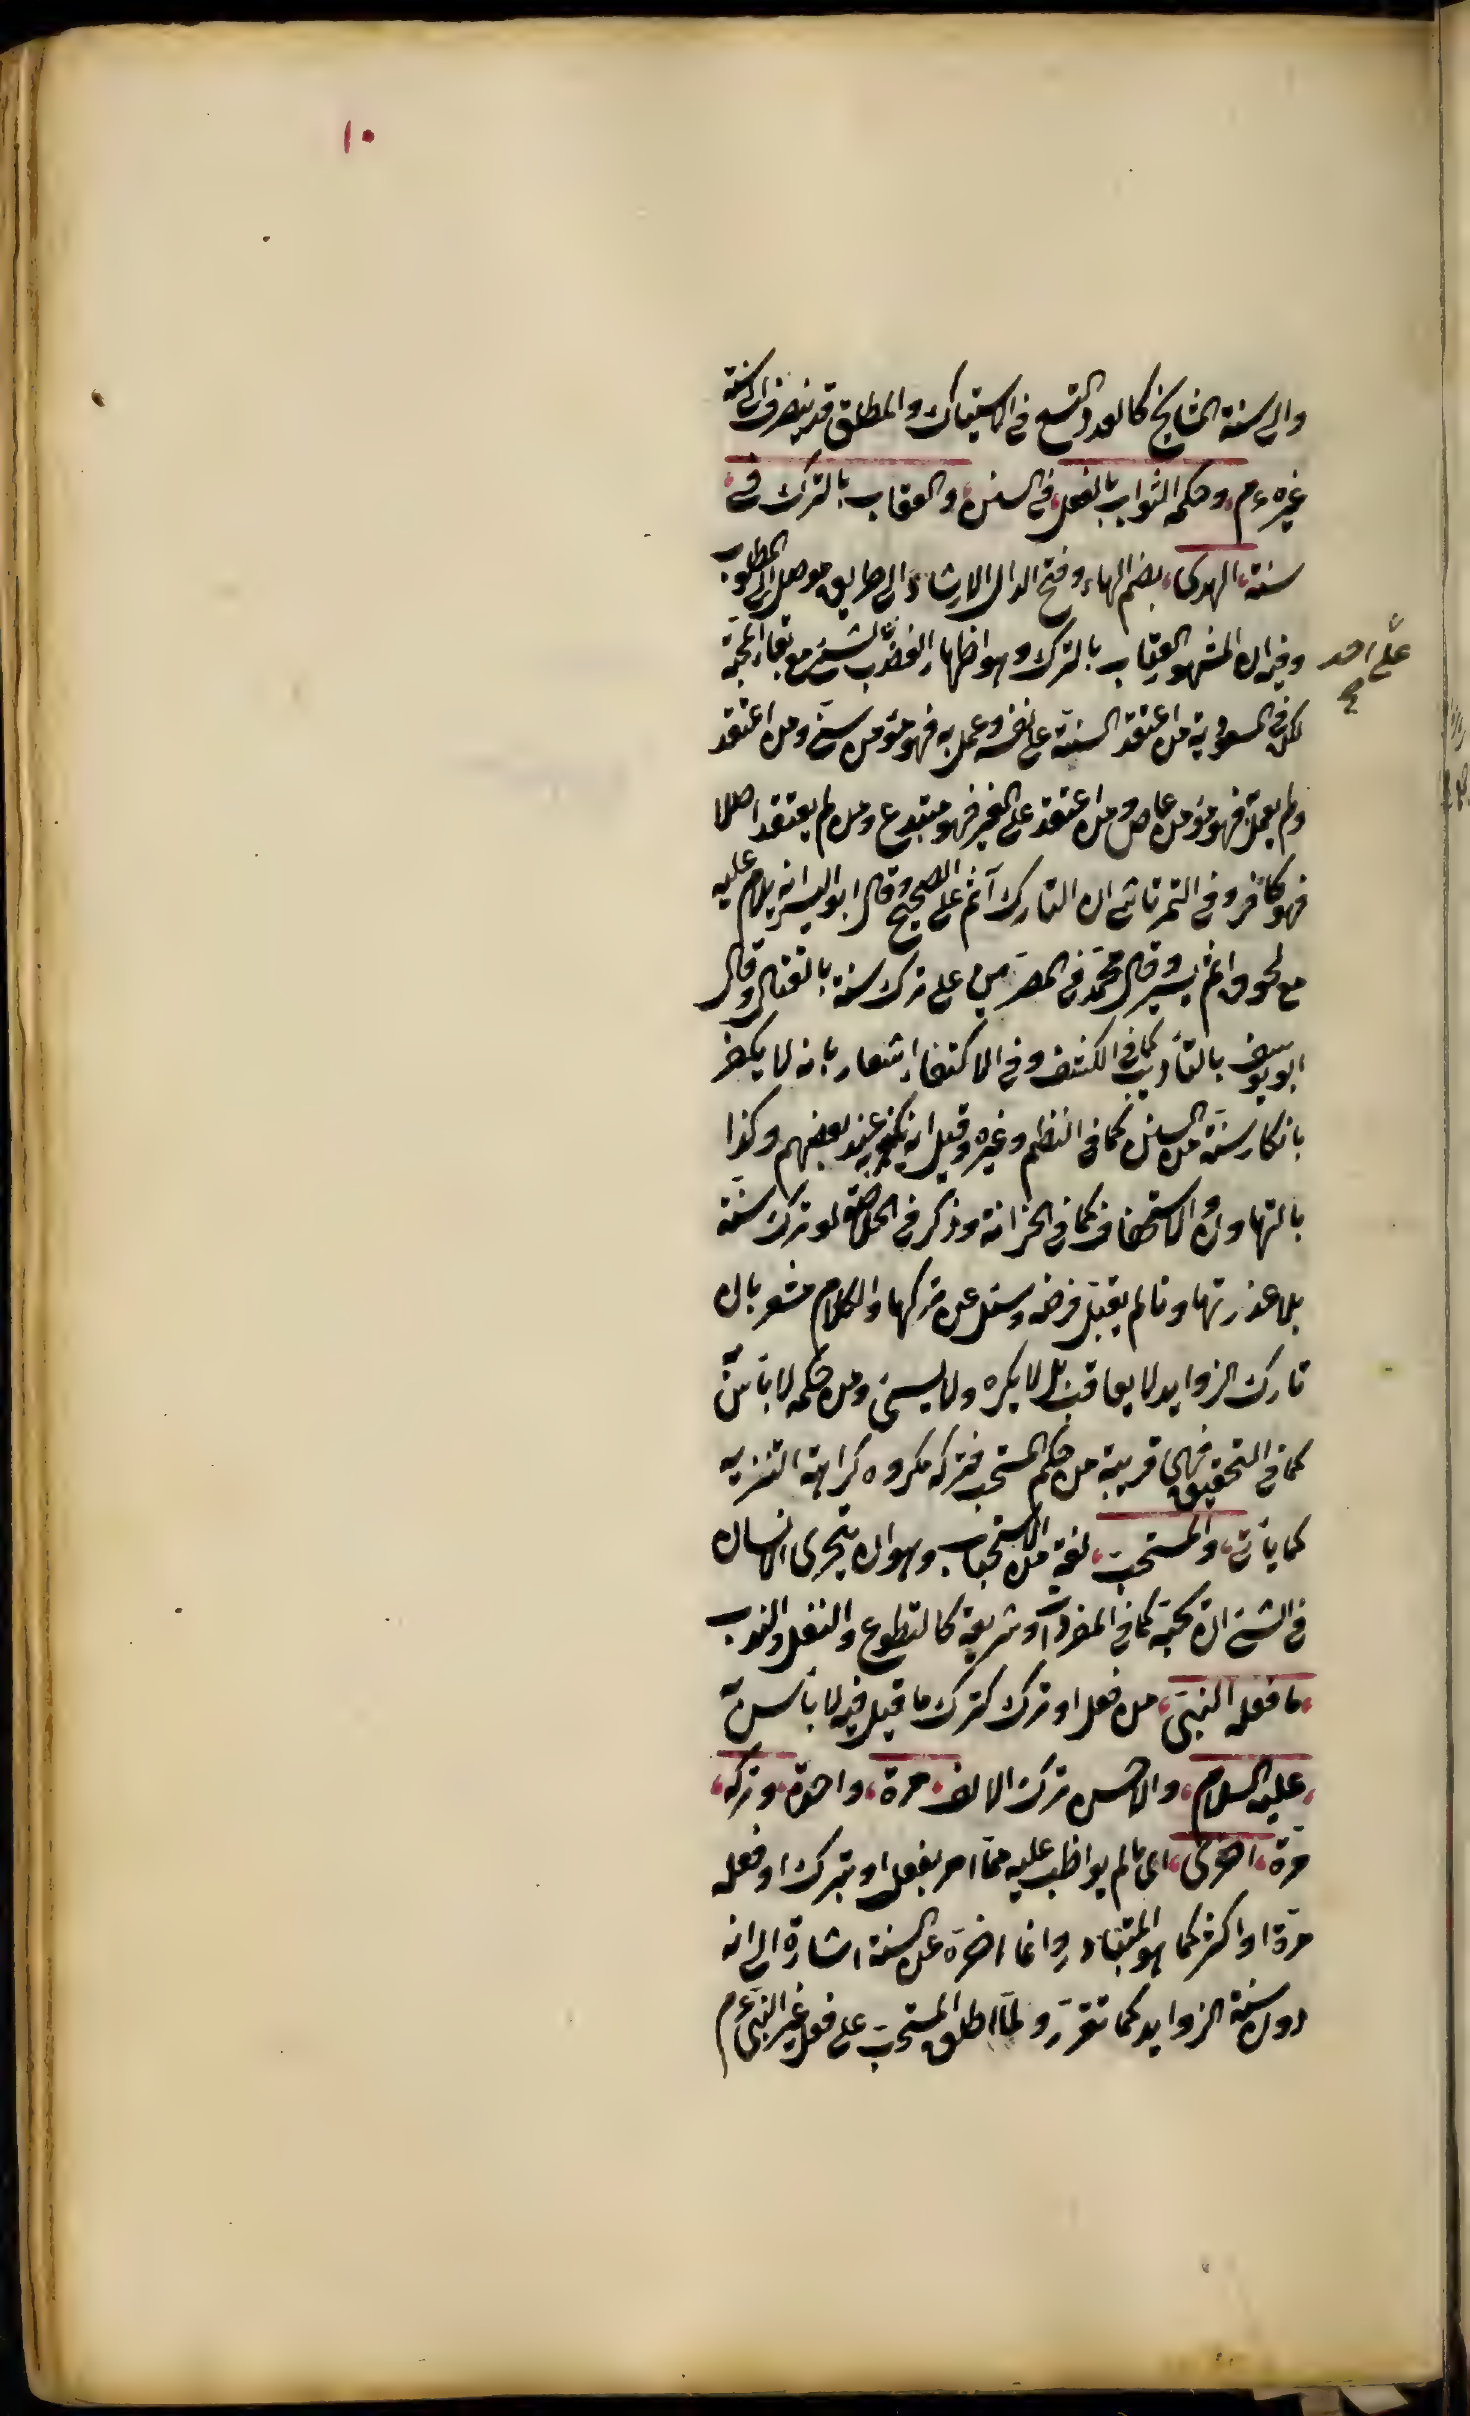 ١٠
والى سنة المشايخ كالعدد التسع في الاستياك والمطلق قد ينصرف الى سنة
غيره ءم وحكمه الثواب بالفعل في السنن والعقاب بالترك في
سنة الهدى بضم الهاء وفتح الدال الارشاد الى طريق موصل الى المطلوب
وفيه ان المشهور العتاب بالترك وهو اظهار الغضب لشئ مع بقاء المحبة
على احد
صح
لكن في المسعودية من اعتقد السنة على نفسه وعمل به فهو مؤمن سنى ومن اعتقد
ولم يعمل فهو مؤمن عاص ومن اعتقد على الغير فهو مبتدع ومن لم يعتقد اصلا
فهو كافر وفي التمرتاشى ان التارك آثم على الصحيح وقال ابو اليسر انه يلام عليه
مع لحوق اثم يسير وقال محمد في المصرين على ترك سنة بالقتال وقال
ابو يوسف بالتأديب كما في الكشف وفي الاكتفاء اشعار بانه لا يكفر
بانكار سنة من السنن كما في النظم وغيره وقيل انه يكفر به عند بعضهم وكذا
بالتهاون والاستخفاف كما في الخزانة وذكر في الخلاصة لو ترك سنة
بلا عذر تهاونا لم يقبل فرضه وسئل عن تركها والكلام مشعر بان
تارك الزوايد لا يعاقب بل لا يكره ولا يسئ ومن حكمه لا بأس به
كما في التحقيق فهي قريبة من حكم المستحب فتركه مكروه كراهة التنزيه
كما يأتى والمستحب لغة من الاستحباب وهو ان يتحرى الانسان
في الشئ ان يحبه كما في المفردات وشريعة كالتطوع والنفل والندب
ما فعله النبى من فعل او ترك كترك ما قيل فيه لا بأس به
عليه السلام والاحسن ترك الالف مرة واحدة وتركه
مرة اخرى اى ما لم يواظب عليه مما امر بفعل او بترك او فعله
مرة او اكثر كما هو المتبادر وانما اخره عن السنة اشارة الى انه
دون سنة الزوايد كما تقرر ولما اطلق المستحب على فعل غير النبى ءم